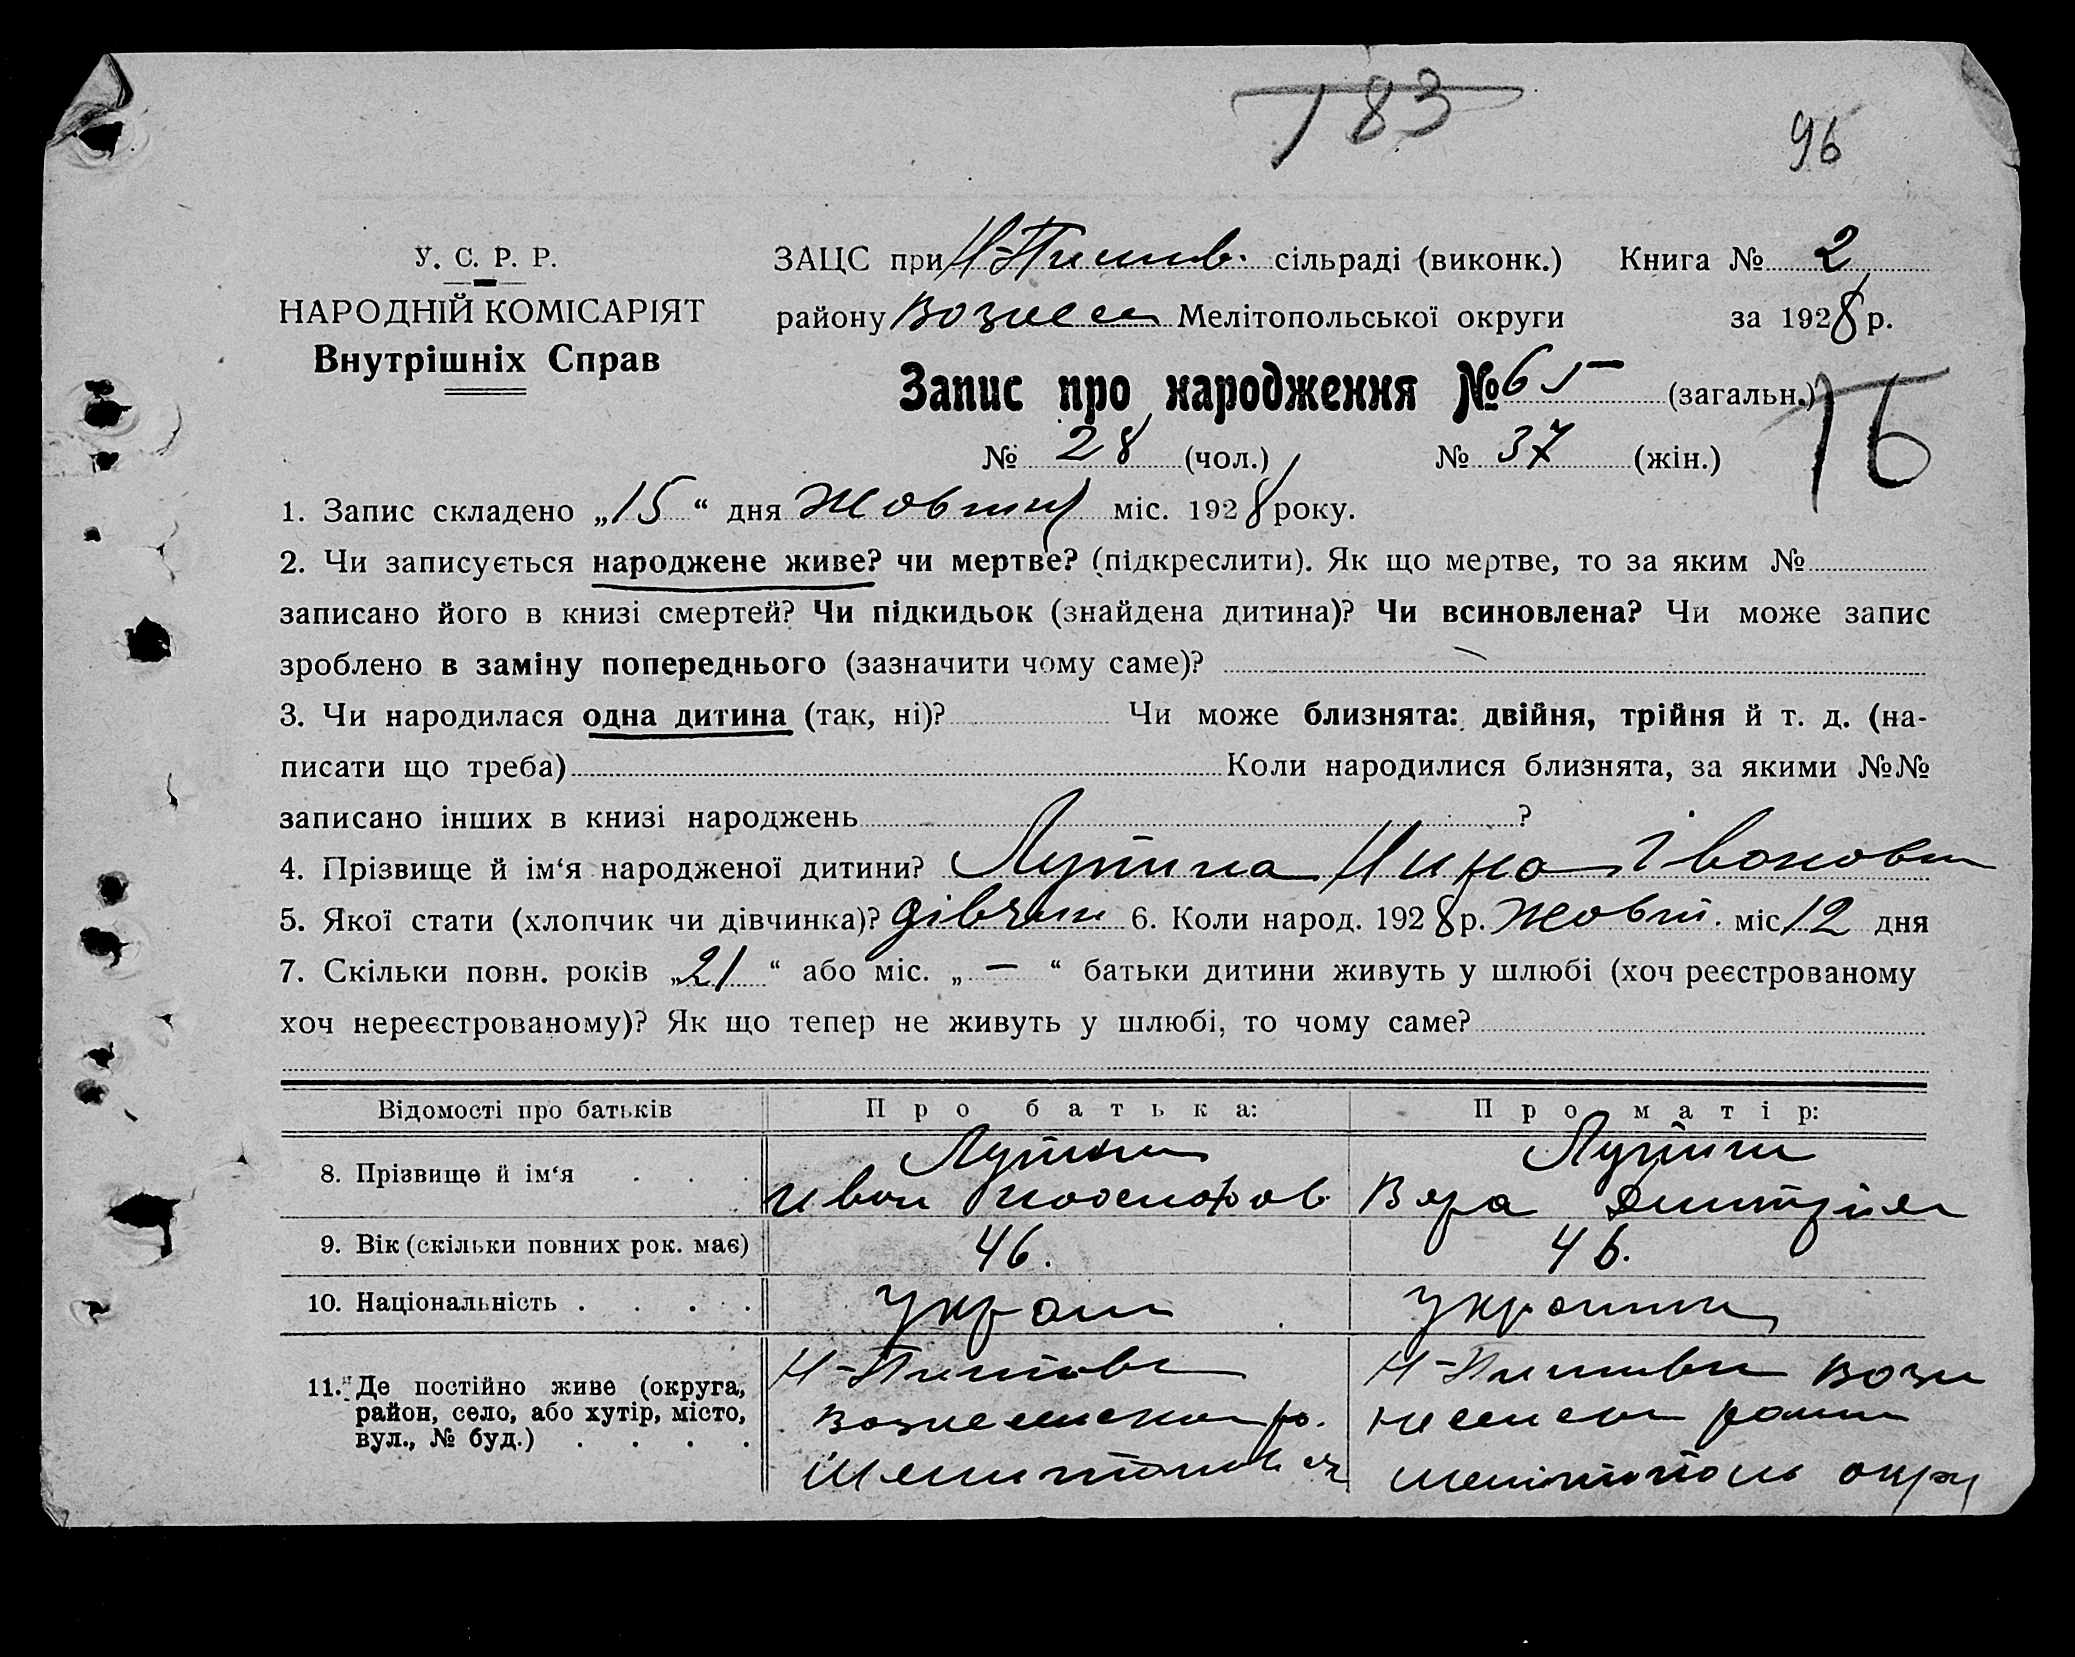 183
96
У. С. Р. Р.
НАРОДНІЙ КОМІСАРІЯТ
Внутрішніх Справ
ЗАЦС при сільраді (виконк.) Книга № 2
району Мелітопольської округи за 1928 р.
Запис про народження № 65 (загальн.)
16
№ 28 (чол.) № 37 (жін.)
1. Запис складено „15“ дня Жовтня міс. 1928 року.
2. Чи записується народжене живе? чи мертве? (підкреслити). Як що мертве, то за яким №
записано його в книзі смертей? Чи підкидьок (знайдена дитина)? Чи всиновлена? Чи може запис
зроблено в заміну попереднього (зазначити чому саме)? —
3. Чи народилася одна дитина (так, ні)? Чи може близнята: двійня, трійня й т. д. (на-
писати що треба) Коли народилися близнята, за якими №№
записано інших в книзі народжень ?
4. Прізвище й ім‘я народженої дитини? Нина Івановн
5. Якої стати (хлопчик чи дівчинка)? дівчин 6. Коли народ. 1928 р. Жовт. міс 12 дня
7. Скільки повн. років „21“ або міс. „—“ батьки дитини живуть у шлюбі (хоч реєстрованому
хоч нереєстрованому)? Як що тепер не живуть у шлюбі, то чому саме?
Відомості про батьків Про батька: Про матір:
8. Прізвище й ім‘я . . .
Иван Вера
9. Вік (скільки повних рок. має) 46. 46.
10. Національність . . . . Украин Украинк
11. Де постійно живе (округа,
район, село, або хутір, місто,
вул., № буд.) . . . .